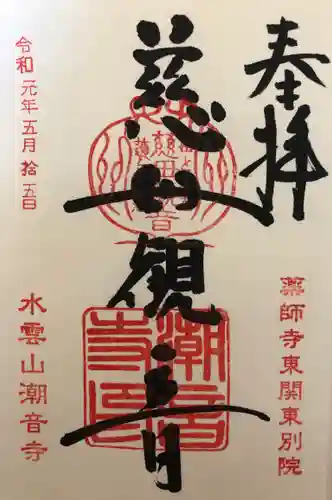 奉拝
薬師寺東関東別院
慈母観音
潮音
寺印
令和元年五月拾五日
水雲山潮音寺